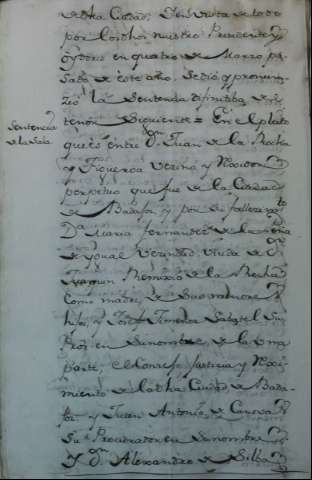 de dha Ciudad; Y en vista de todo
por los dhos nuestro Presidente y
oydores en quatro de Marzo pa
sado de este año. Se dio y pronun
Sentencia de la Sala
zio la Sentencia difinitiba del
tenor Siguiente = En el pleito
que es entre Dn Juan de la Rocha
y Figueroa vezino y Rexidor
perpetuo que fue de la Ciudad
de Badajoz, y por su fallezimto
Da Maria fernandez de la
de ygual vecindad viuda de Dn
Joaquin Remirio de la Rocha
como madre de sus menores
hijos, y Josef Ximenez Salgtel Su
Proz en su nombre de la una
parte, el Conzejo Justicia y Rexi
miento de la dha Ciudad de Bada
joz y Juan Antonio de Canova
su Procurador en su nombre
Y Dn Alexandro de Silba